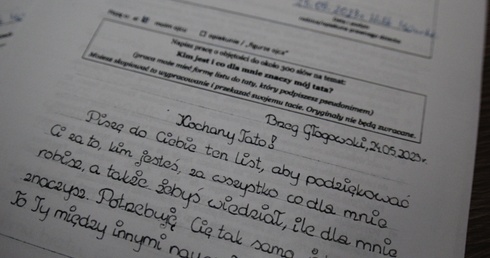 29.05.2023r.
□ opiekuna / „figura ojca"
Napisz pracę o objętości do około 500 słów na temat:
Kim jest i co dla mnie znaczy mój tata?
(praca może mieć formę listu do taty, który podpiszesz pseudonimem)
Możesz skopiować to wypracowanie i przekazać swojemu tacie. Oryginały nie będą zwracane.
Brzeg Głogowski, 26.05.2023r.
Kochany Tato!
Piszę do Ciebie ten list, aby podziękować
Ci za to, kim jesteś, za wszystko co dla mnie
robisz, a także żebyś wiedział, ile dla mnie
znaczysz. Potrzebuję Cię tak samo
To Ty między innymi